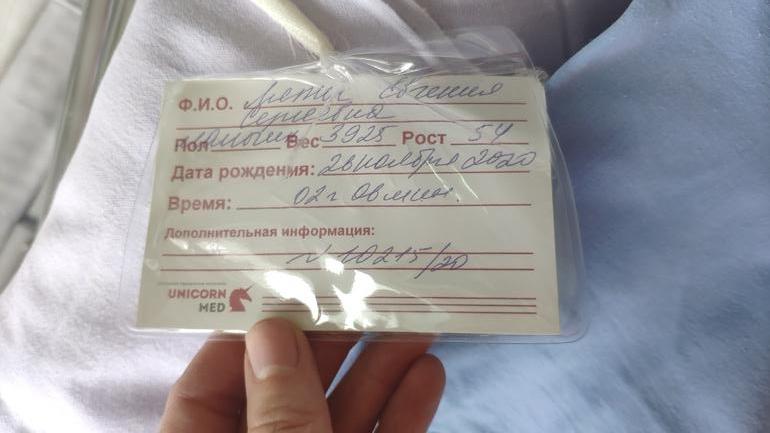 Ф.И.О. Евгения
Сергеевна
Пол мальчик Вес 3925 Рост 54
Дата рождения: 26 ноября 2020
Время: 02г 08 мин.
Дополнительная информация:
N 10215/20
UNICORN
MED